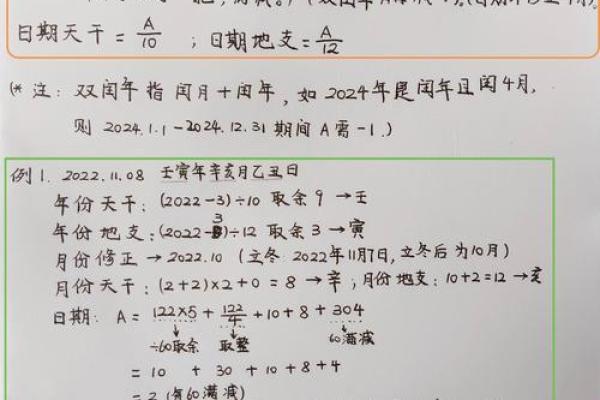 日期天干 = A/10 ; 日期地支 = A/12
(* 注: 双闰年指闰月+闰年, 如2024年是闰年且闰4月,
则 2024.1.1-2024.12.31 期间 A需-1.)
例1. 2022.11.08 壬寅年辛亥月乙丑日
年份天干: (2022-3)÷10 取余9 → 壬
年份地支: (2022-3)÷12 取余3 → 寅
月份修正 → 2022.10 (立冬 2022年11月7日, 立冬后为10月)
月份天干: (2+2)×2+0 = 8 → 辛; 月份地支: 10+2=12 → 亥
日期: A = 122×5 + 122/4 + 10 + 8 + 304
÷60取余 取整 60满减
= 10 + 30 + 10 + 8 + 4
= 2 (有60满减)